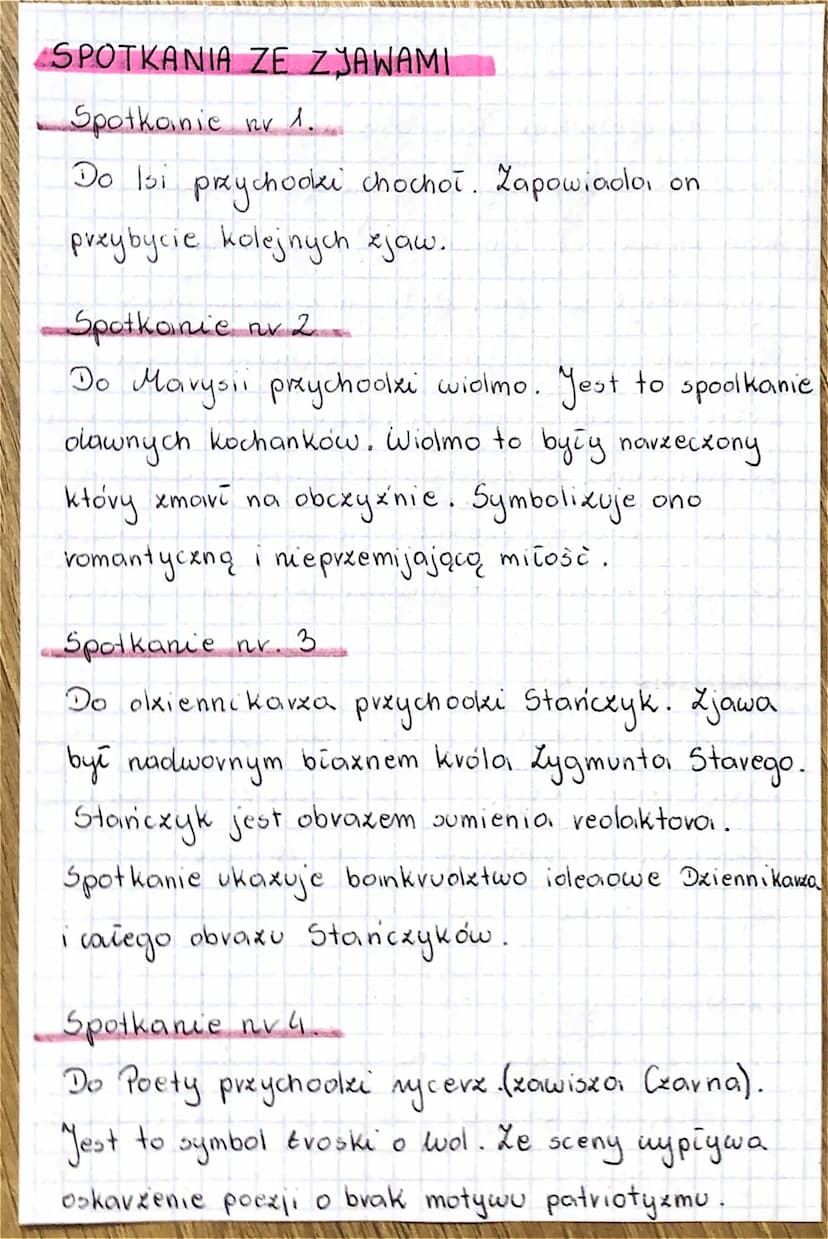 SPOTKANIA ZE ZJAWAMI
Spotkanie nr 1.
Do Isi przychodzi chochoł. Zapowiada on
przybycie kolejnych zjaw.
Spotkanie nr 2
Do Marysii przychodzi widmo. Jest to spodkanie
dawnych kochanków. Widmo to były narzeczony
który zmarł na obczyźnie. Symbolizuje ono
romantyczną i nieprzemijającą miłość.
Spotkanie nr. 3
Do dziennikarza przychodzi Stańczyk. Zjawa
był nadwornym błaznem króla Zygmunta Starego.
Stańczyk jest obrazem sumienia redaktora.
Spotkanie ukazuje bankrudztwo ideaowe Dziennikarza
i całego obrazu Stańczyków.
Spotkanie nr 4.
Do Poety przychodzi rycerz (zawisza Czarna).
Jest to symbol troski o lud. Ze sceny wypływa
oskarżenie poezji o brak motywu patriotyzmu.